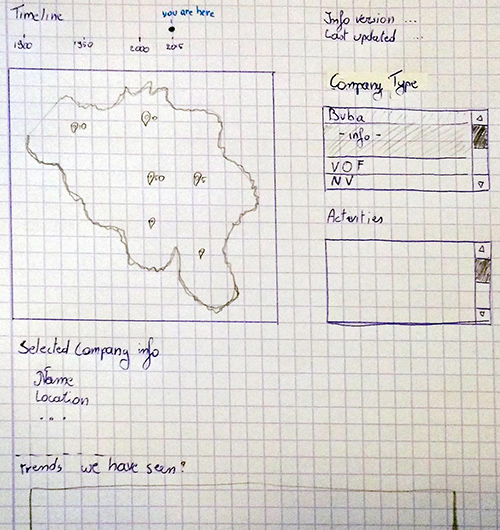 Timeline
you are here
1900 1950 2000 2015
Info version ...
Last updated ..
Company Type
Bvba
- info -
VOF
NV
10
50
5
Activities
Selected Company info
Name
Location
...
trends we have seen?